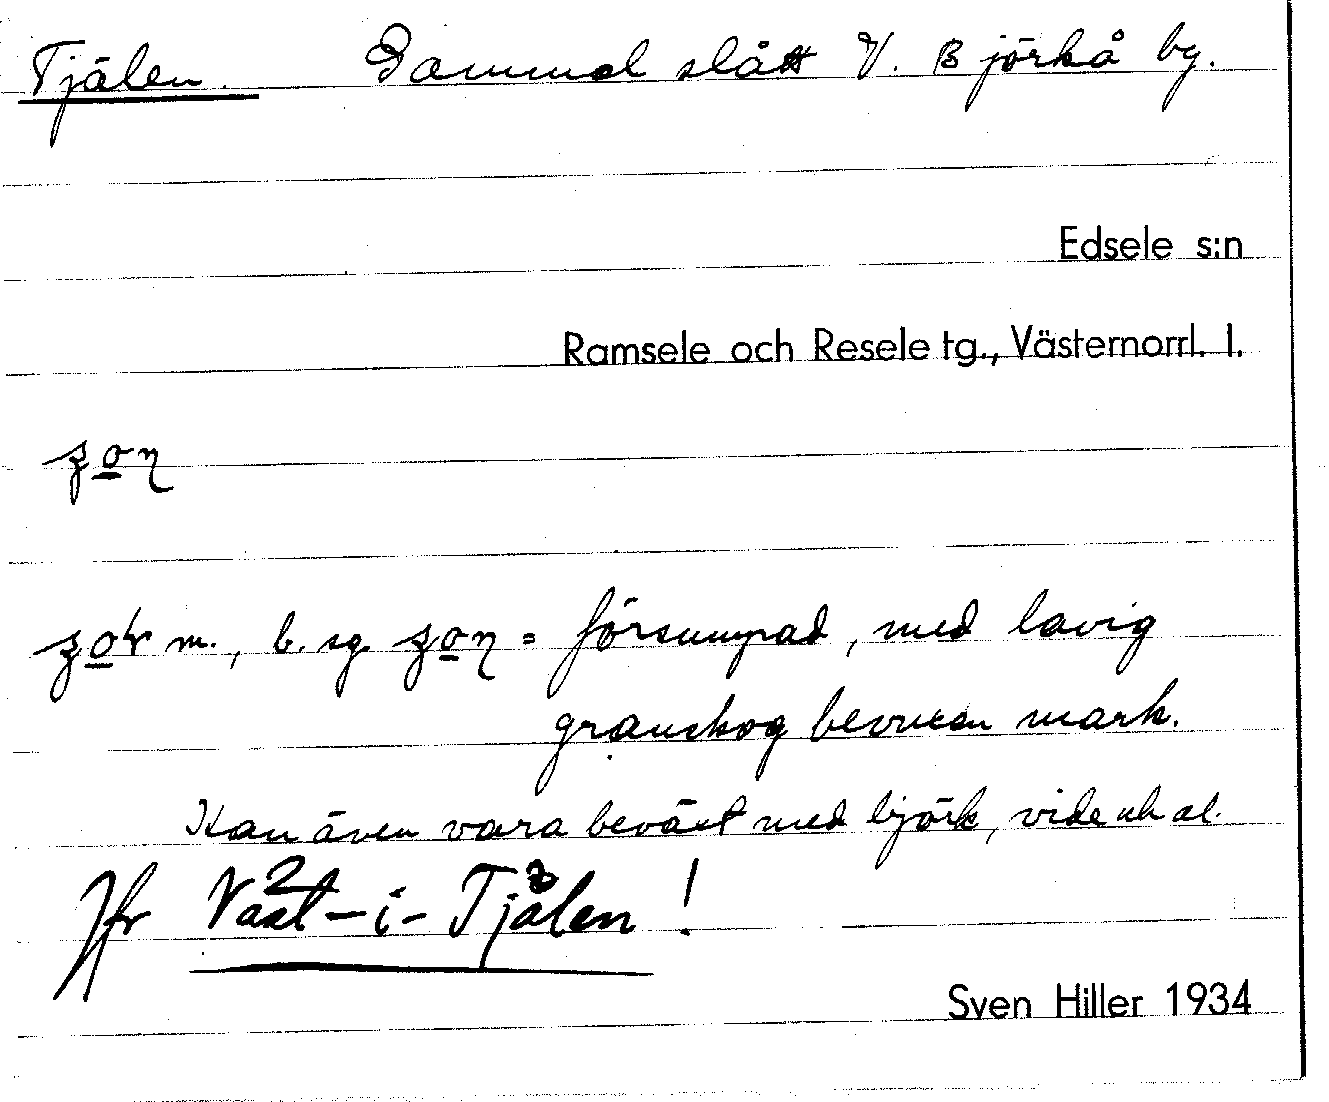 Tjälen. Gammal slått V. Björkå by.
Edsele s:n
Ramsele och Resele tg., Västernorrl. l.
m., b. sg. = försumpad, med lavig
granskog bevuxen mark.
Kan även vara beväxt med björk, vide och al.
Jfr Väst-i-Tjålen!
Sven Hiller 1934